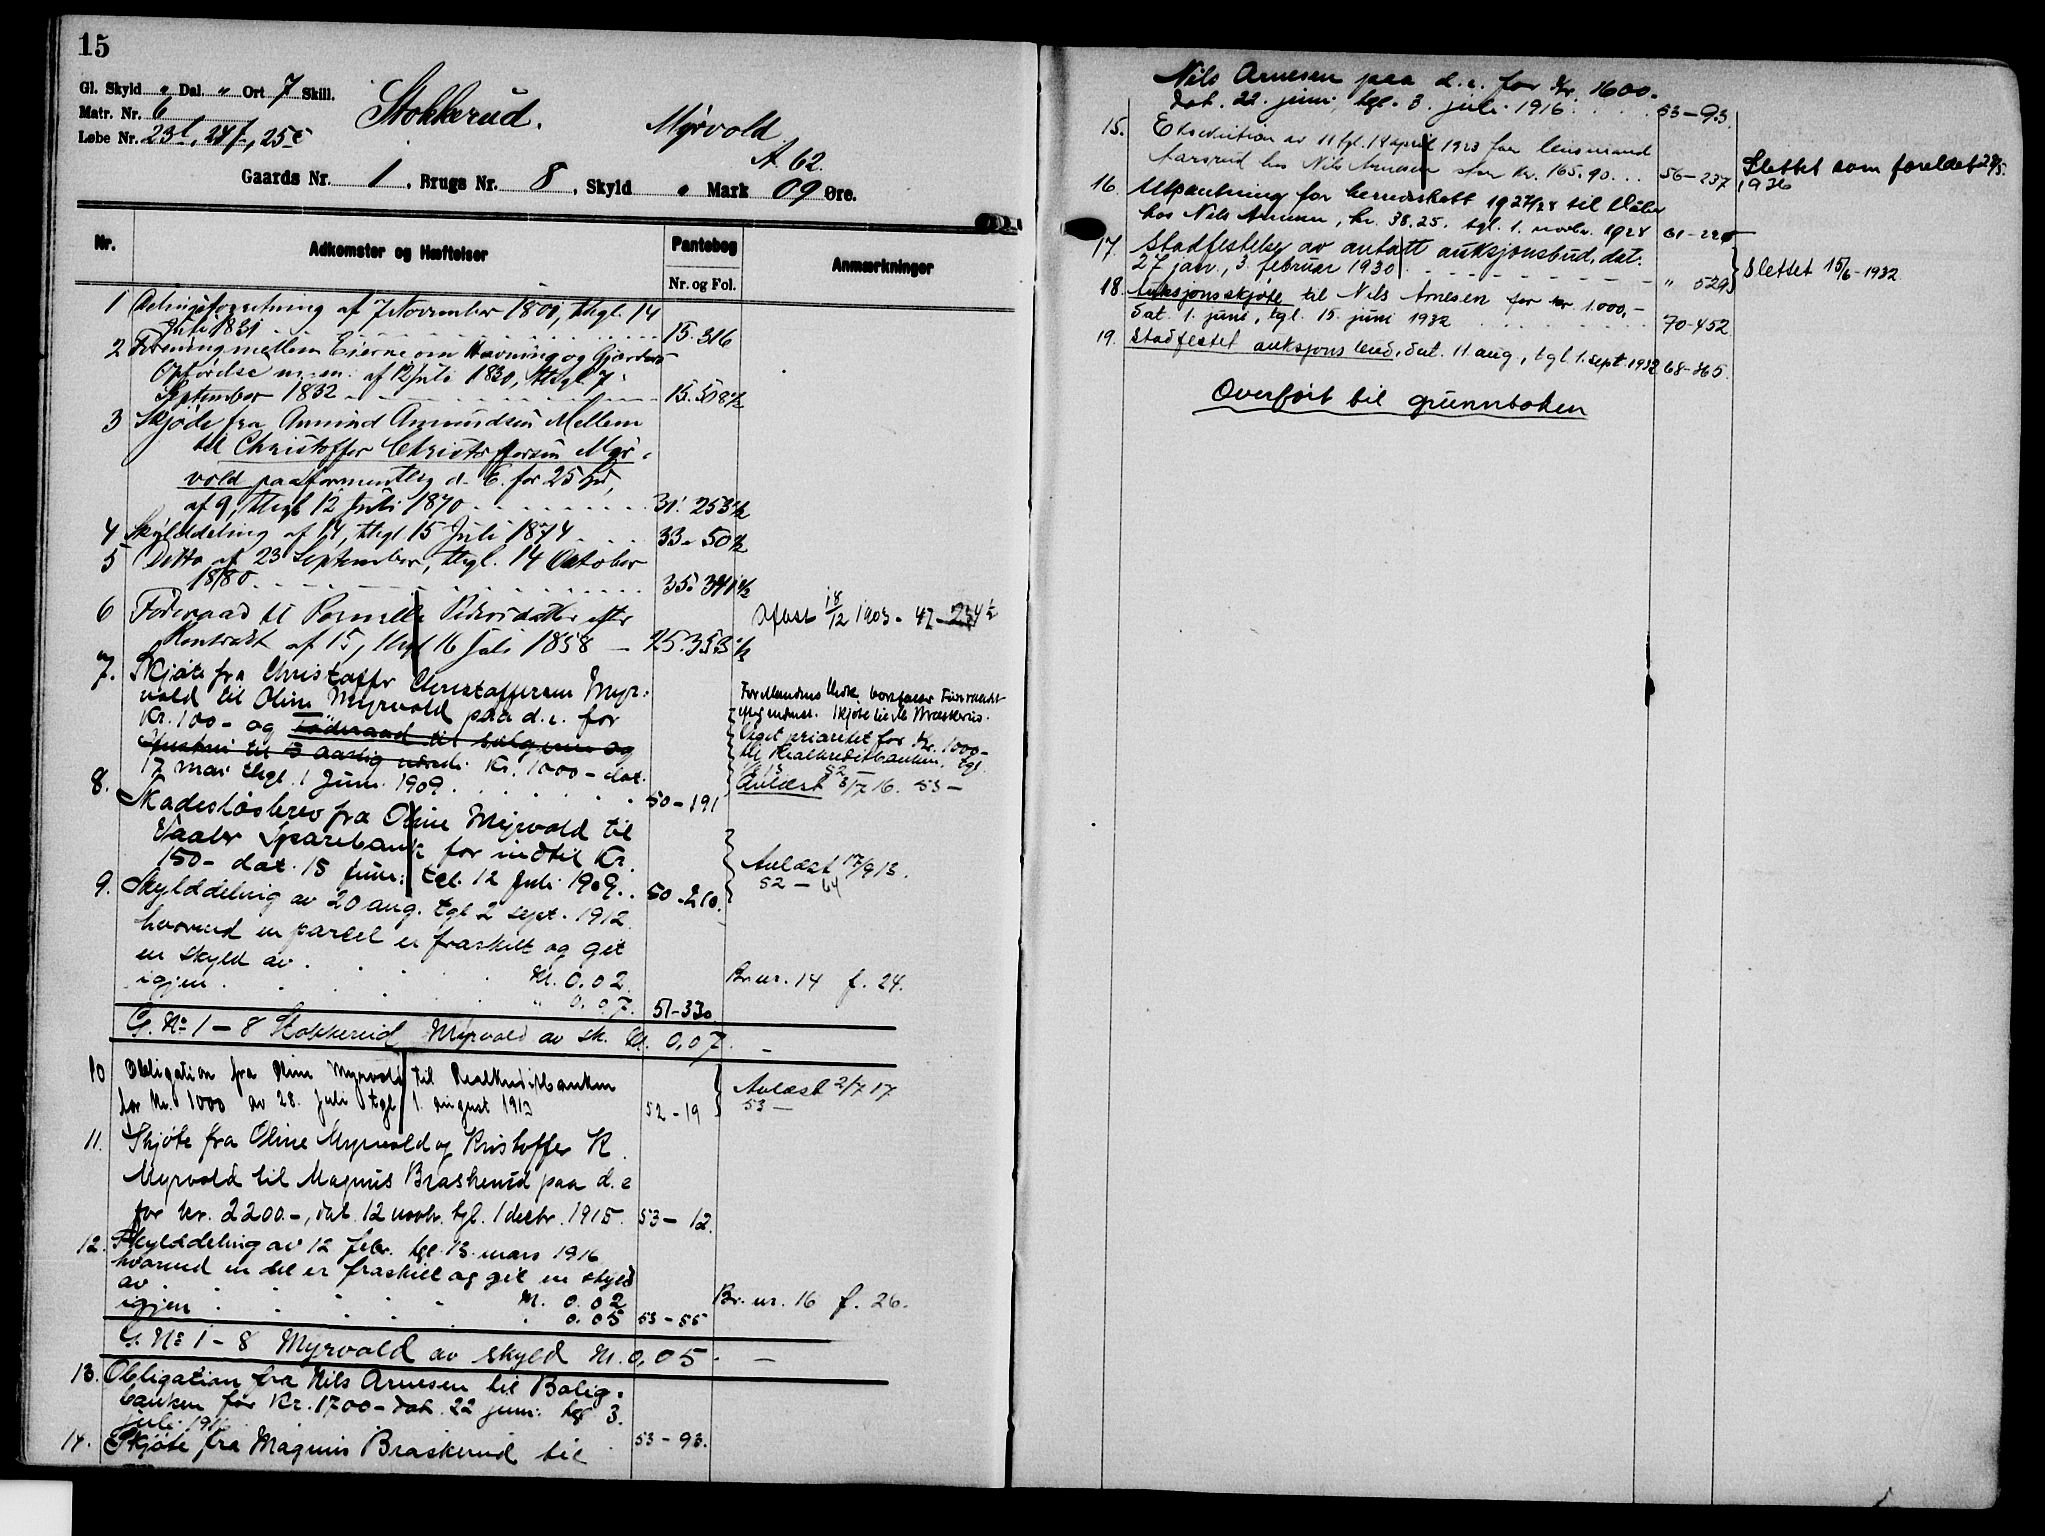 15
Gl. Skyld " Dal. " Ort 7 Skill.
Matr. Nr. 6
Løbe Nr. 23l, 24f, 25c
Stokkerud.
Myrvold
A. 62.
Gaards Nr. 1, Brugs Nr. 8, Skyld " Mark 09 Øre.
Nr. Adkomster og Hæftelser Pantebog Anmærkninger
Nr. og Fol.
1 Delingsforretning af 7 November 1801, thgl. 14
Juli 1831 15. 316
2 Forening mellem Eierne om Havning og Gjærders
Opførelse m. m. af 12 Juli 1830, thgl. 7
September 1832 15. 508½
3 Skjøde fra Anmund Amundsen Mellem
til Christoffer Christoffersen Myr-
vold paa formentlig d. E. for 25 Spd,
af 9, thgl 12 Juli 1870 31. 253½
4 Skylddeling af 14, thgl 15 Juli 1874 33. 50½
5 Ditto af 23 September, thgl. 14 Oktober
1880 35. 341½
6 Føderaad til Pernille Pedersdatter efter
Kontrakt af 15, thgl 16 Juli 1858 25. 353½
Aflæst 18/12 1903. 47-234½
7. Skjøte fra Christoffer Christoffersen Myr-
vold til Oline Myrvold paa d. e. for
Kr. 100- og Føderaad til sælgeren og
Hustru til 5 aarlig værdi Kr. 1000- dat.
17 mai thgl. 1 Juni 1909. 50-191
skjøte til M Braskerud.
Veget prioritet for Kr. 1000-
til Realkreditbanken, tgl.
52 -
Avlæst 3/7 16. 53 -
8. Skadesløsbrev fra Oline Myrvold til
Vaaler Sparebank for indtil Kr.
150- dat. 15 Juni, tgl. 12 Juli 1909. 50-210.
Avlæst 17/9 13.
52 - 64
9. Skylddeling av 20 aug. tgl 2 sept. 1912
hvorved en parcel er fraskilt og git
en skyld av M. 0.02 Br. nr. 14 f. 24.
igjen " 0.07. 51-330
G. No 1-8 Stokkerud Myrvold av sk. M. 0,07. -
10 Obligation fra Oline Myrvold til Realkreditbanken
for Kr. 1000 av 28. juli tgl 1. august 1913 52-19
Avlæst 2/7 17
53 -
11. Skjøte fra Oline Myrvold og Kristoffer K.
Myrvold til Magnus Braskerud paa d. e
for kr. 2200.-, dat. 12 novbr. tgl. 1 decbr. 1915. 53-12.
12. Skylddeling av 12 febr. tgl. 13. mars 1916
hvorved en del er fraskilt og git en skyld
av M. 0.02 Br. nr. 16 f. 26.
igjen " 0.05 53-55
G. No 1-8 Myrvold av skyld M. 0,05. -
13. Obligation fra Nils Arnesen til Bolig-
banken for Kr. 1700- dat. 22 juni tgl 3.
juli 1916 53-93.
14. Skjøte fra Magnus Braskerud til
Nils Arnesen paa d. e. for Kr. 1600.
dat. 22. juni, tgl. 3. juli 1916 53-93.
15. Eksekution av 11 tgl. 14 april 1923 fra lensmand
Aarsrud hos Nils Arnesen stor kr. 165.90 56-237
Slettet som foreldet 28/5
1936
16. Utpantning for herredsskatt 1927/28 til Våler
hos Nils Arnesen, kr. 38.25. tgl. 1. novbr. 1928 61-225
17. Stadfestelse av antatt auksjonsbud, dat.
27 jan., 3. februar 1930 " 529
Slettet 15/6-1932
18. Auksjonsskjøte til Nils Arnesen for kr 1.000,-
dat. 1. juni, tgl. 15. juni 1932 70-452
19. Stadfestet auksjonsbud, dat. 11 aug, tgl 1. sept. 1932 68-365.
Overført til grunnboken